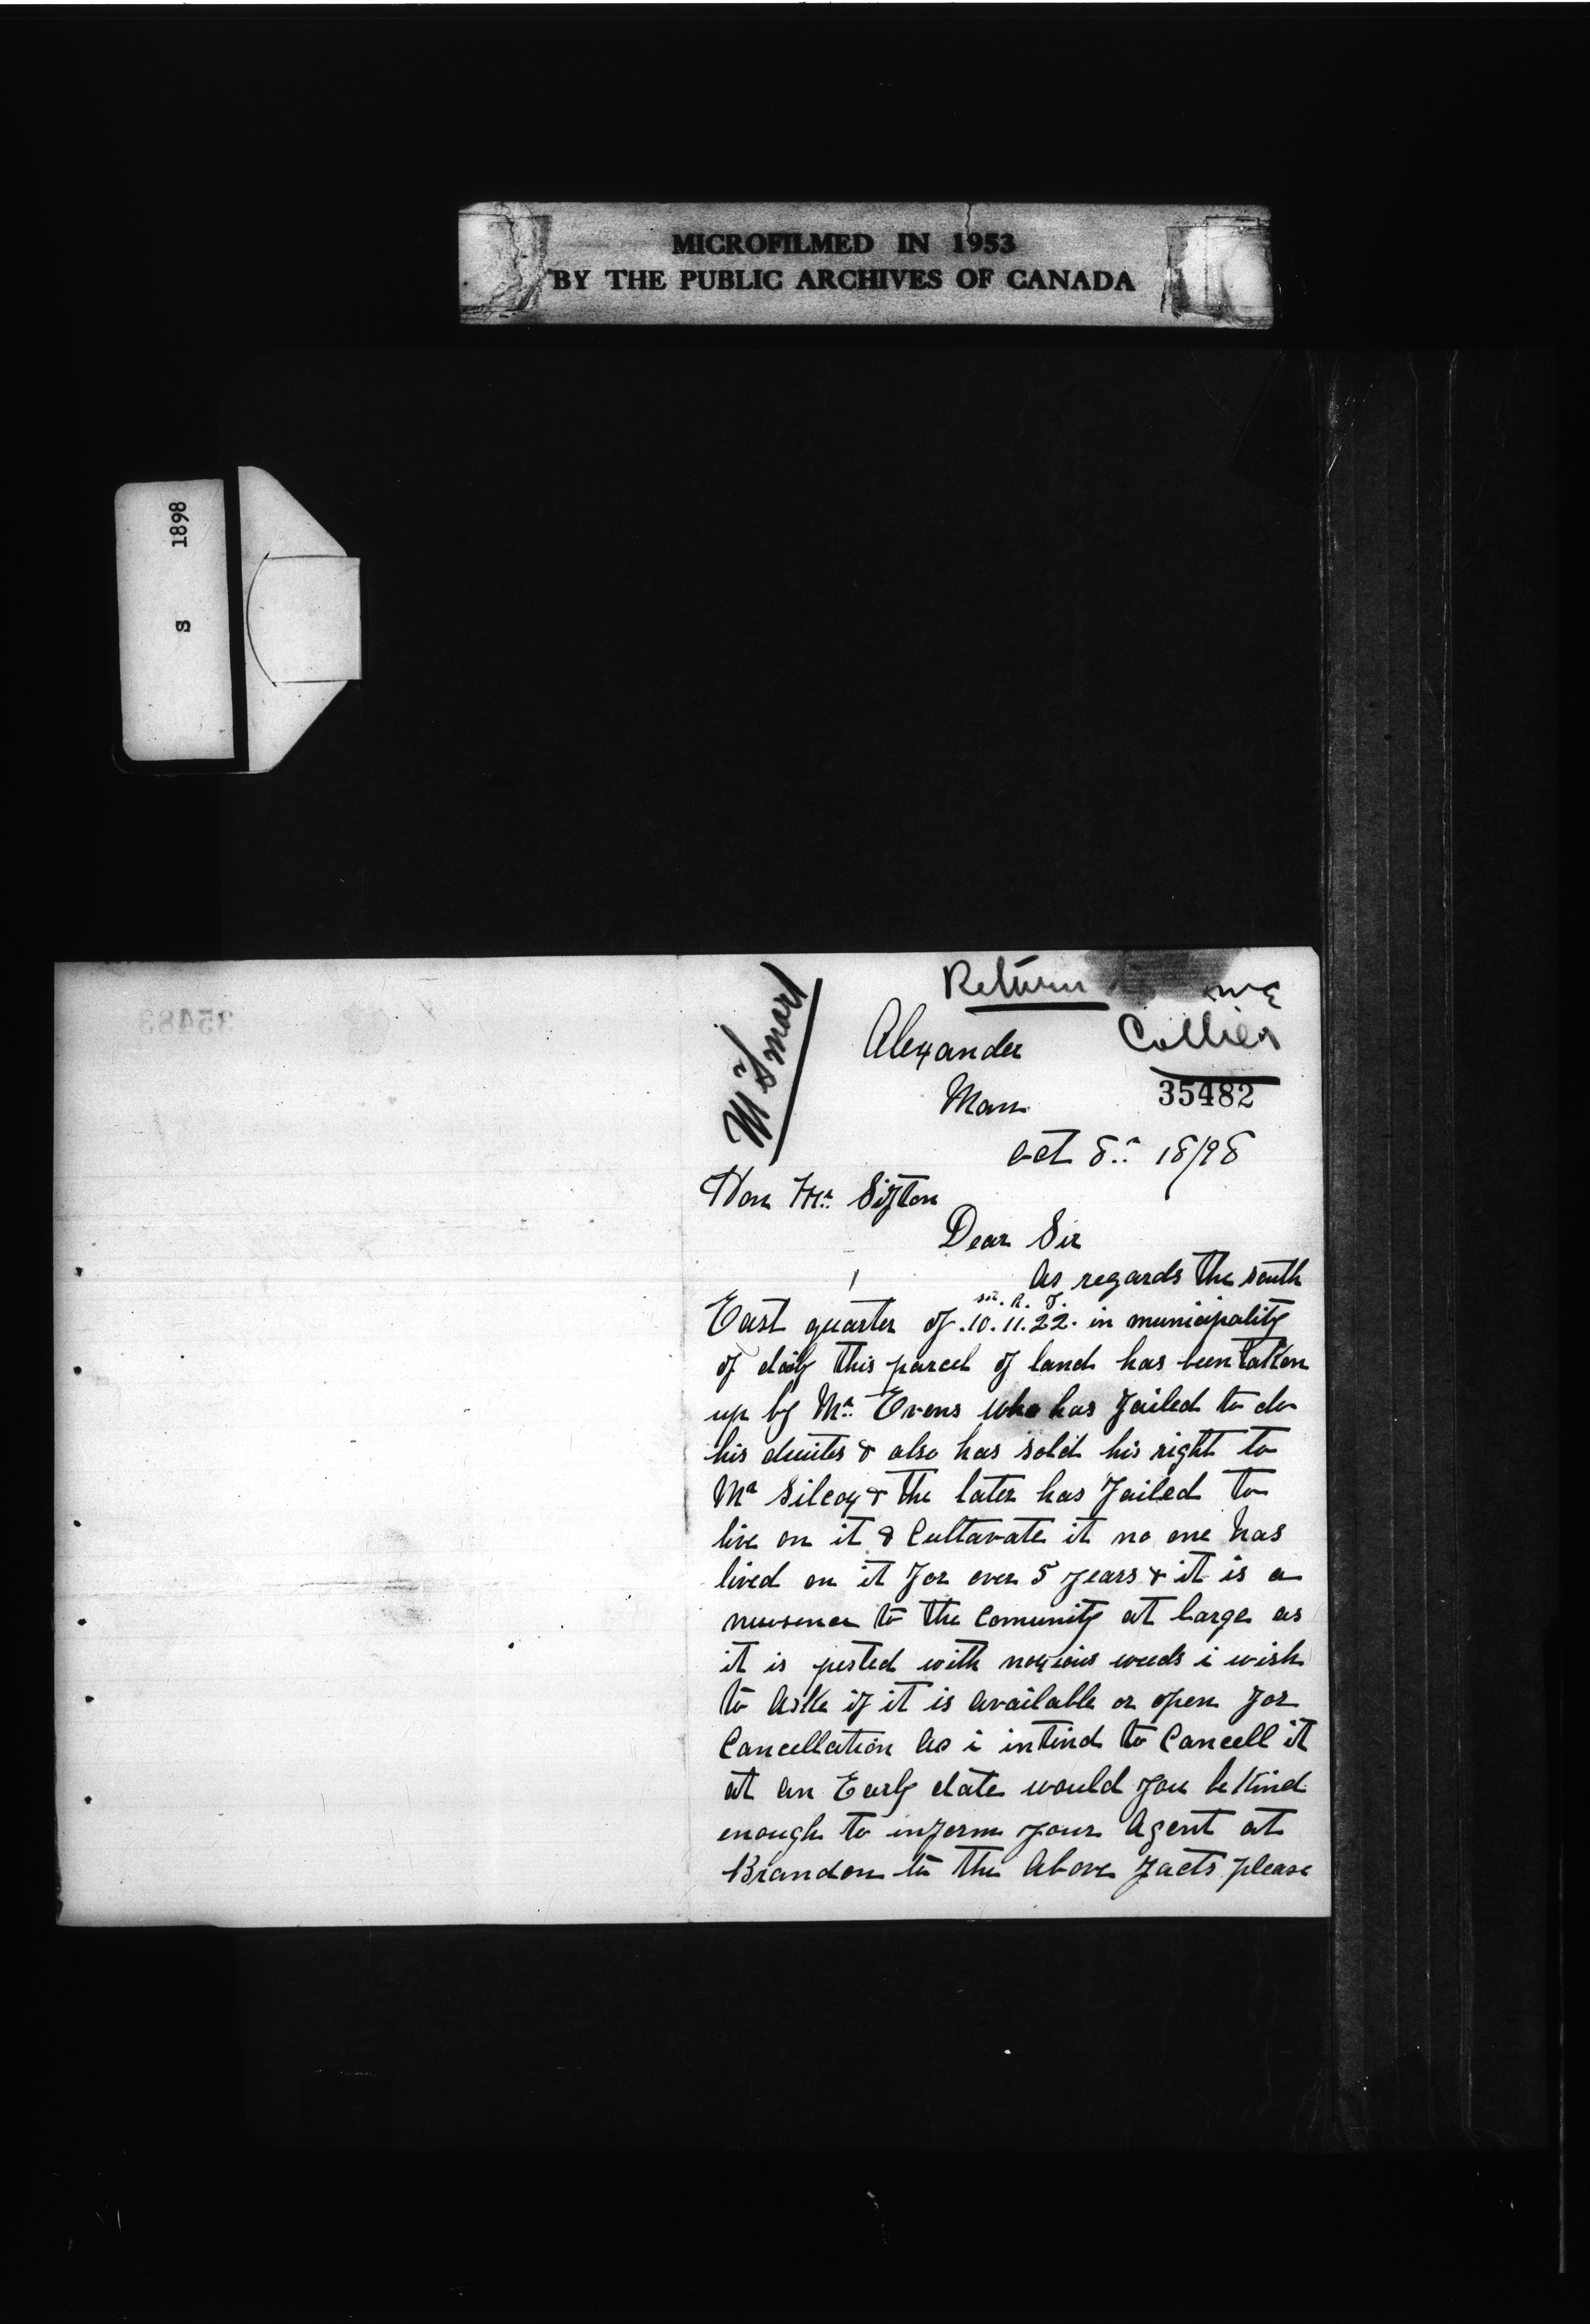 MICROFILMED IN 1953
BY THE PUBLIC ARCHIVES OF CANADA
S 1898
Return
Mr Smart
Collier
Alexander
35482
Man
oct 8th 18/98
Hon Mr. Sifton
Dear Sir
As regards the south
sec. R. T.
East quarter of .10.11.22. in municipality
of daily this parcel of land has been taken
up by Mr. Evens who has failed to do
his duites & also has sold his right to
Mr Silcox & the later has failed to
live on it & Cultavate it no one has
lived on it for over 5 years & it is a
nuesence to the Comunity at large as
it is pested with noxious weeds i wish
to Aske if it is Available or open for
Cancellation As i intind to Cancell it
at an Early date would you be Kind
enough to inform your Agent at
Brandon to the Above facts please